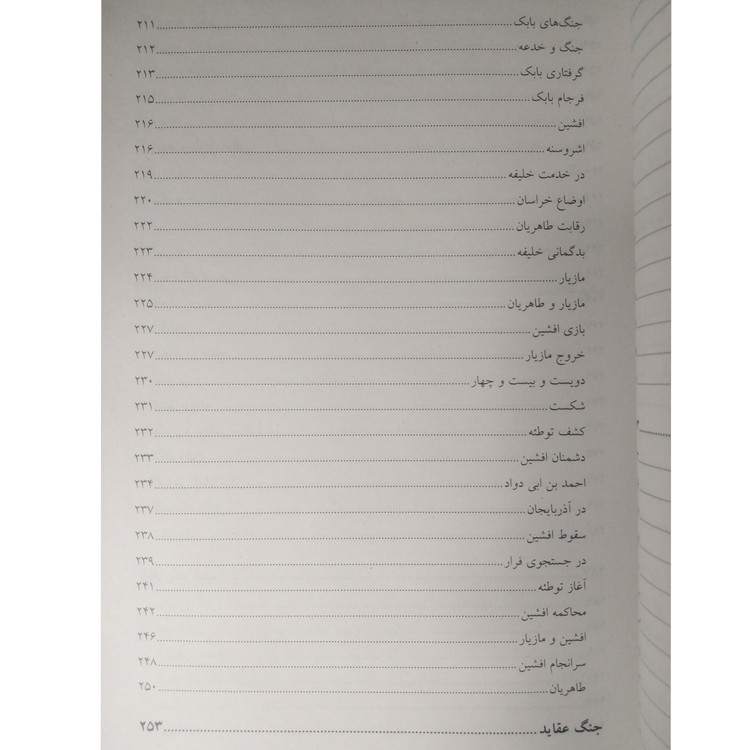 جنگ‌های بابک ........ ۲۱۱
جنگ و خدعه ........ ۲۱۲
گرفتاری بابک ........ ۲۱۳
فرجام بابک ........ ۲۱۵
افشین ........ ۲۱۶
اشروسنه ........ ۲۱۶
در خدمت خلیفه ........ ۲۱۹
اوضاع خراسان ........ ۲۲۰
رقابت طاهریان ........ ۲۲۲
بدگمانی خلیفه ........ ۲۲۳
مازیار ........ ۲۲۴
مازیار و طاهریان ........ ۲۲۵
بازی افشین ........ ۲۲۷
خروج مازیار ........ ۲۲۷
دویست و بیست و چهار ........ ۲۳۰
شکست ........ ۲۳۱
کشف توطئه ........ ۲۳۲
دشمنان افشین ........ ۲۳۳
احمد بن ابی دواد ........ ۲۳۴
در آذربایجان ........ ۲۳۷
سقوط افشین ........ ۲۳۸
در جستجوی فرار ........ ۲۳۹
آغاز توطئه ........ ۲۴۱
محاکمه افشین ........ ۲۴۲
افشین و مازیار ........ ۲۴۶
سرانجام افشین ........ ۲۴۸
طاهریان ........ ۲۵۰
جنگ عقاید ........ ۲۵۳